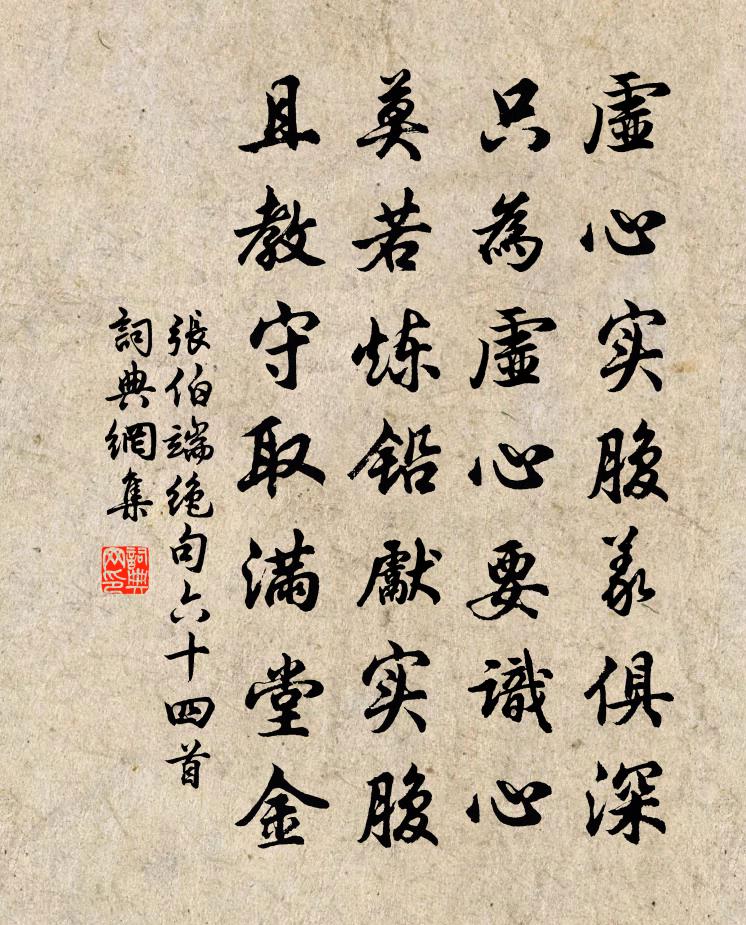 虛心实腹義俱深
只為虛心要識心
莫若炼铅獻实腹
且教守取满堂金
張伯端绝句六十四首
詞典網集
詞典網印